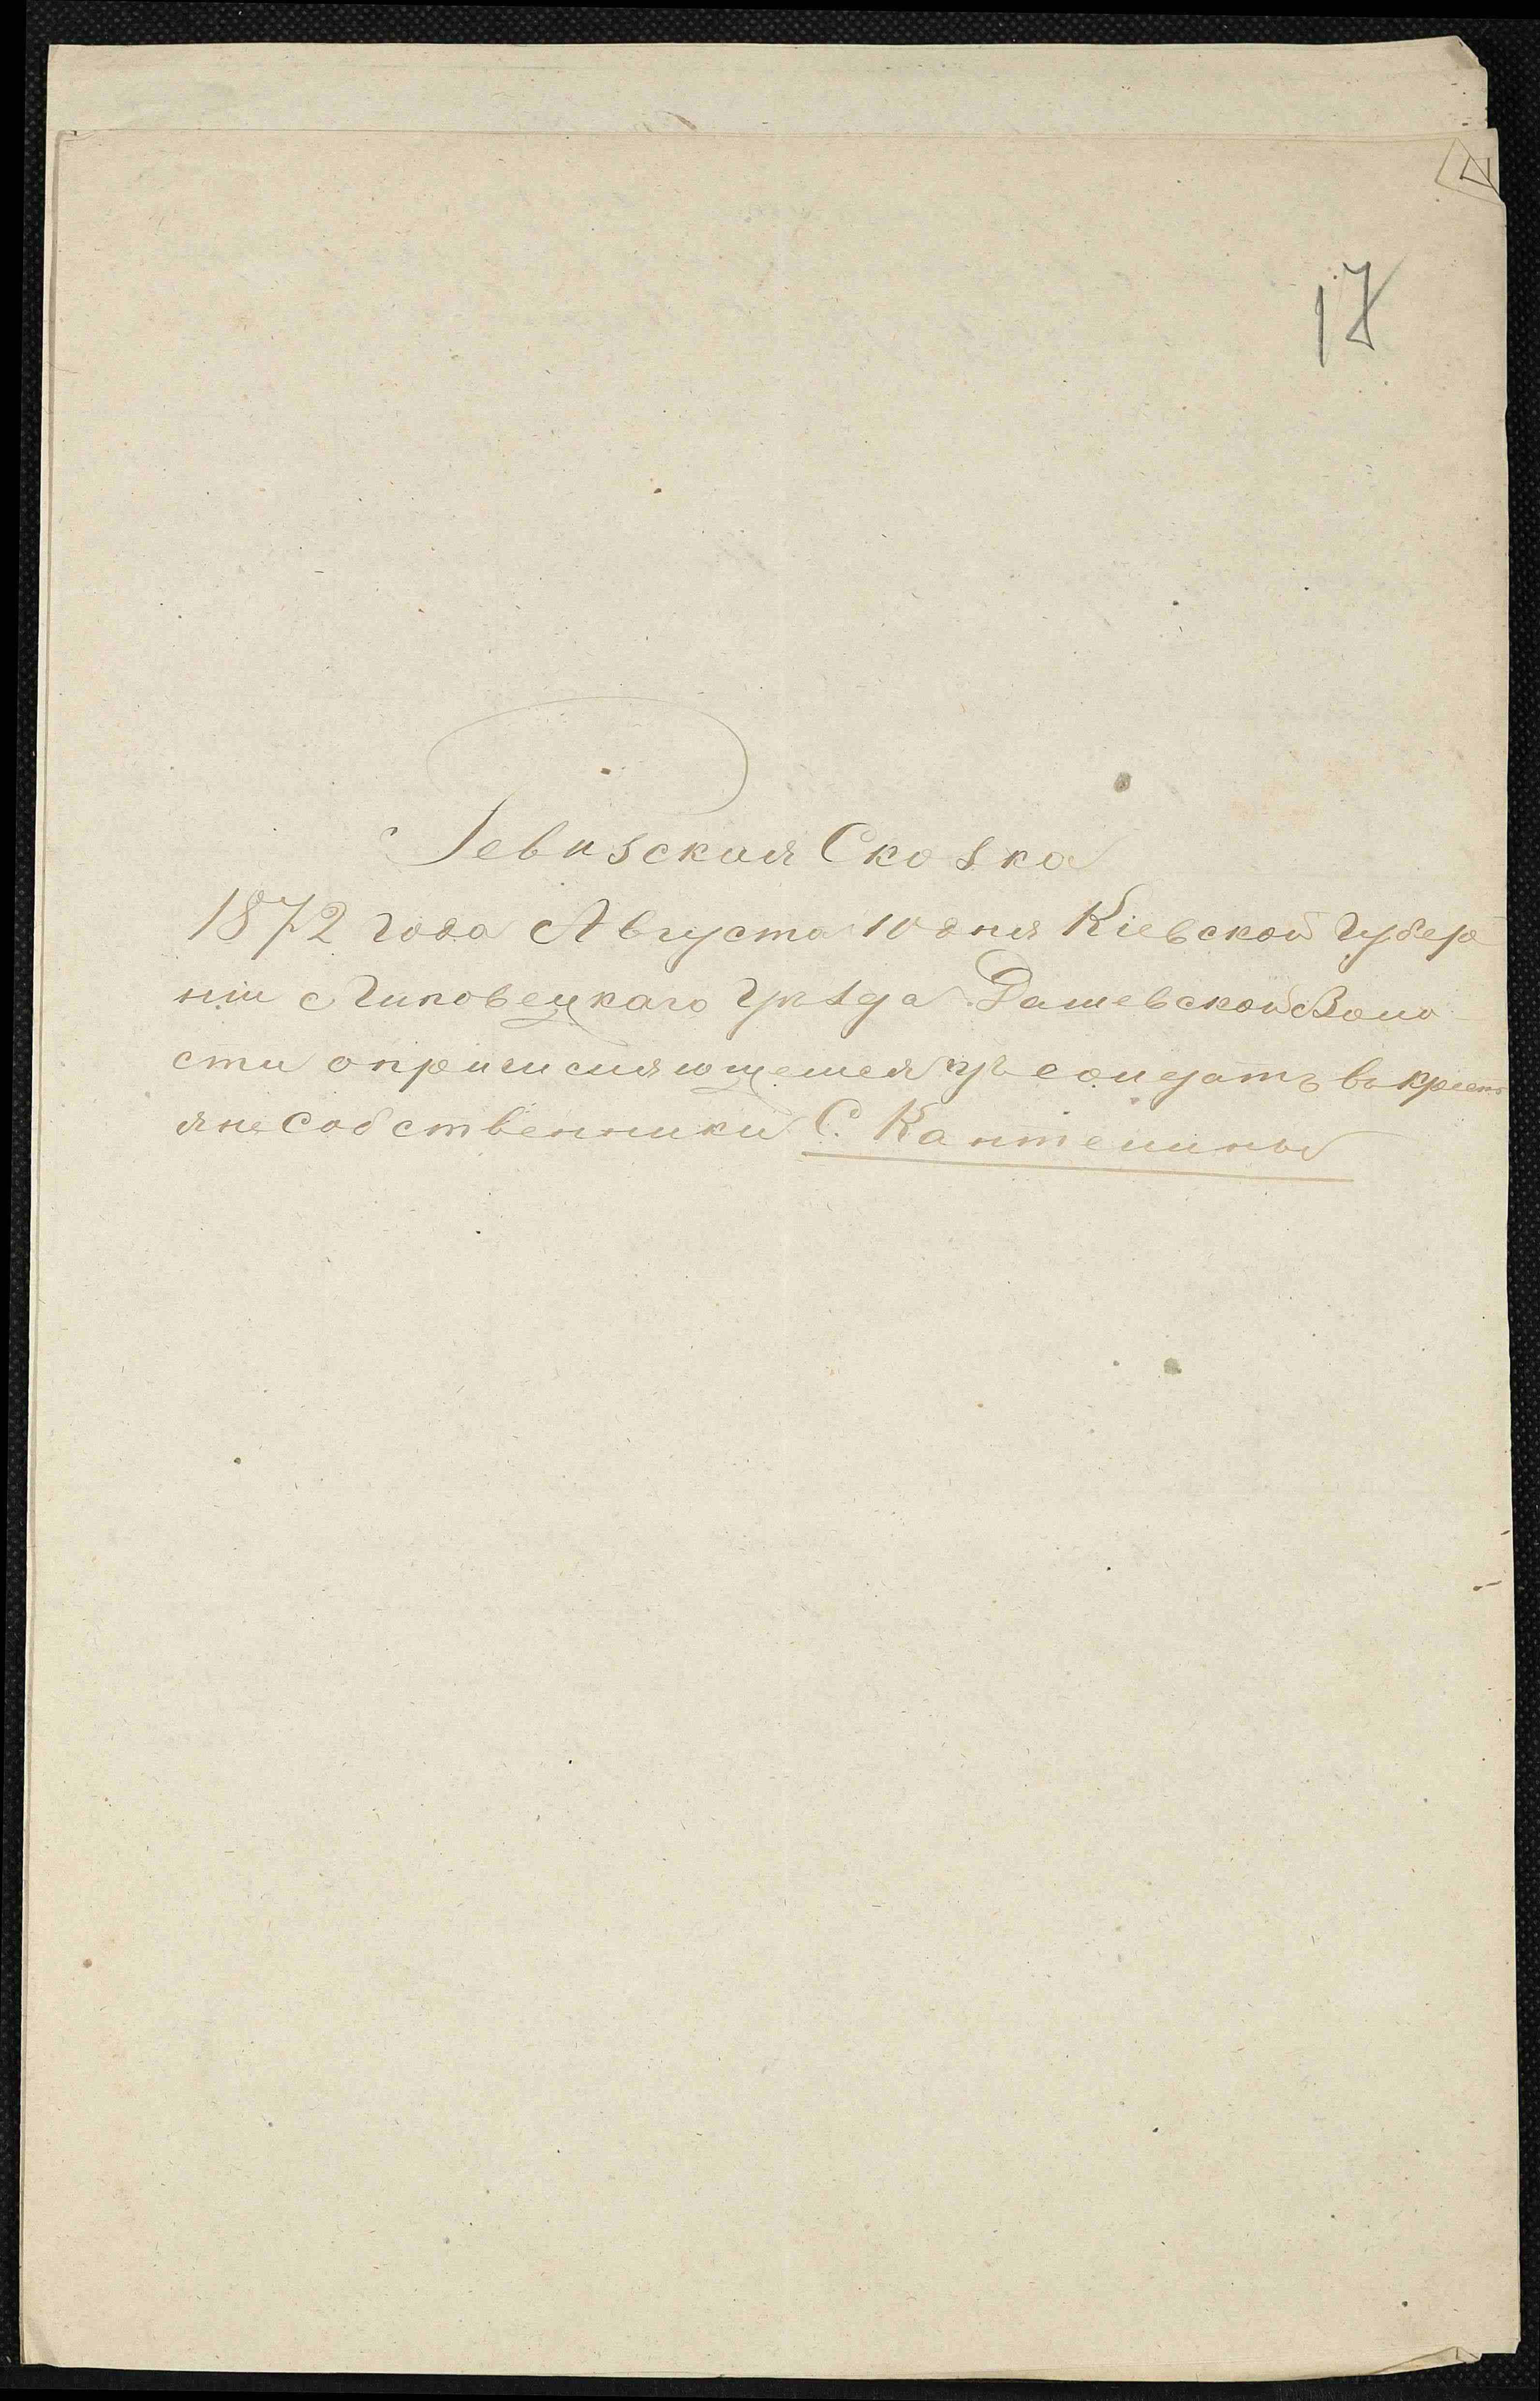 17
Ревизская Сказка
1872 года Августа 10 дня Кіевской Губер
ніи Липовецкаго Уѣзда Дашевской Воло
сти опричисляющемся изъ солдатъ въ крест
яне собственники С. Кантелины